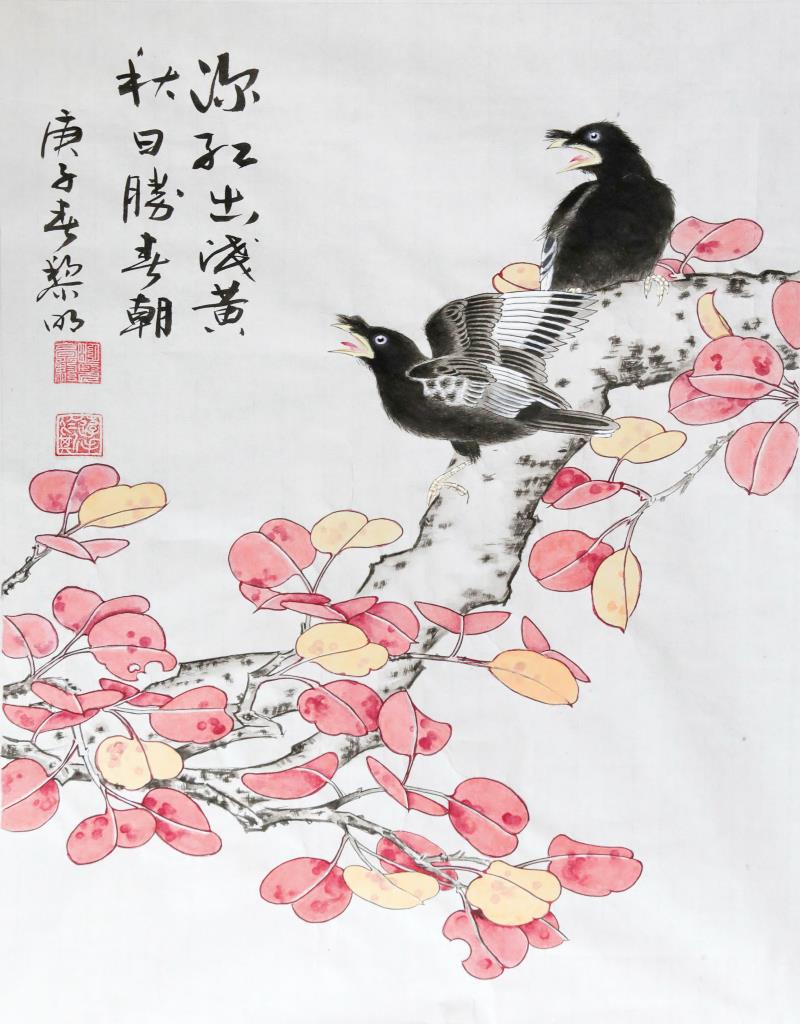 深红出浅黄
秋日勝春朝
庚子春黎明